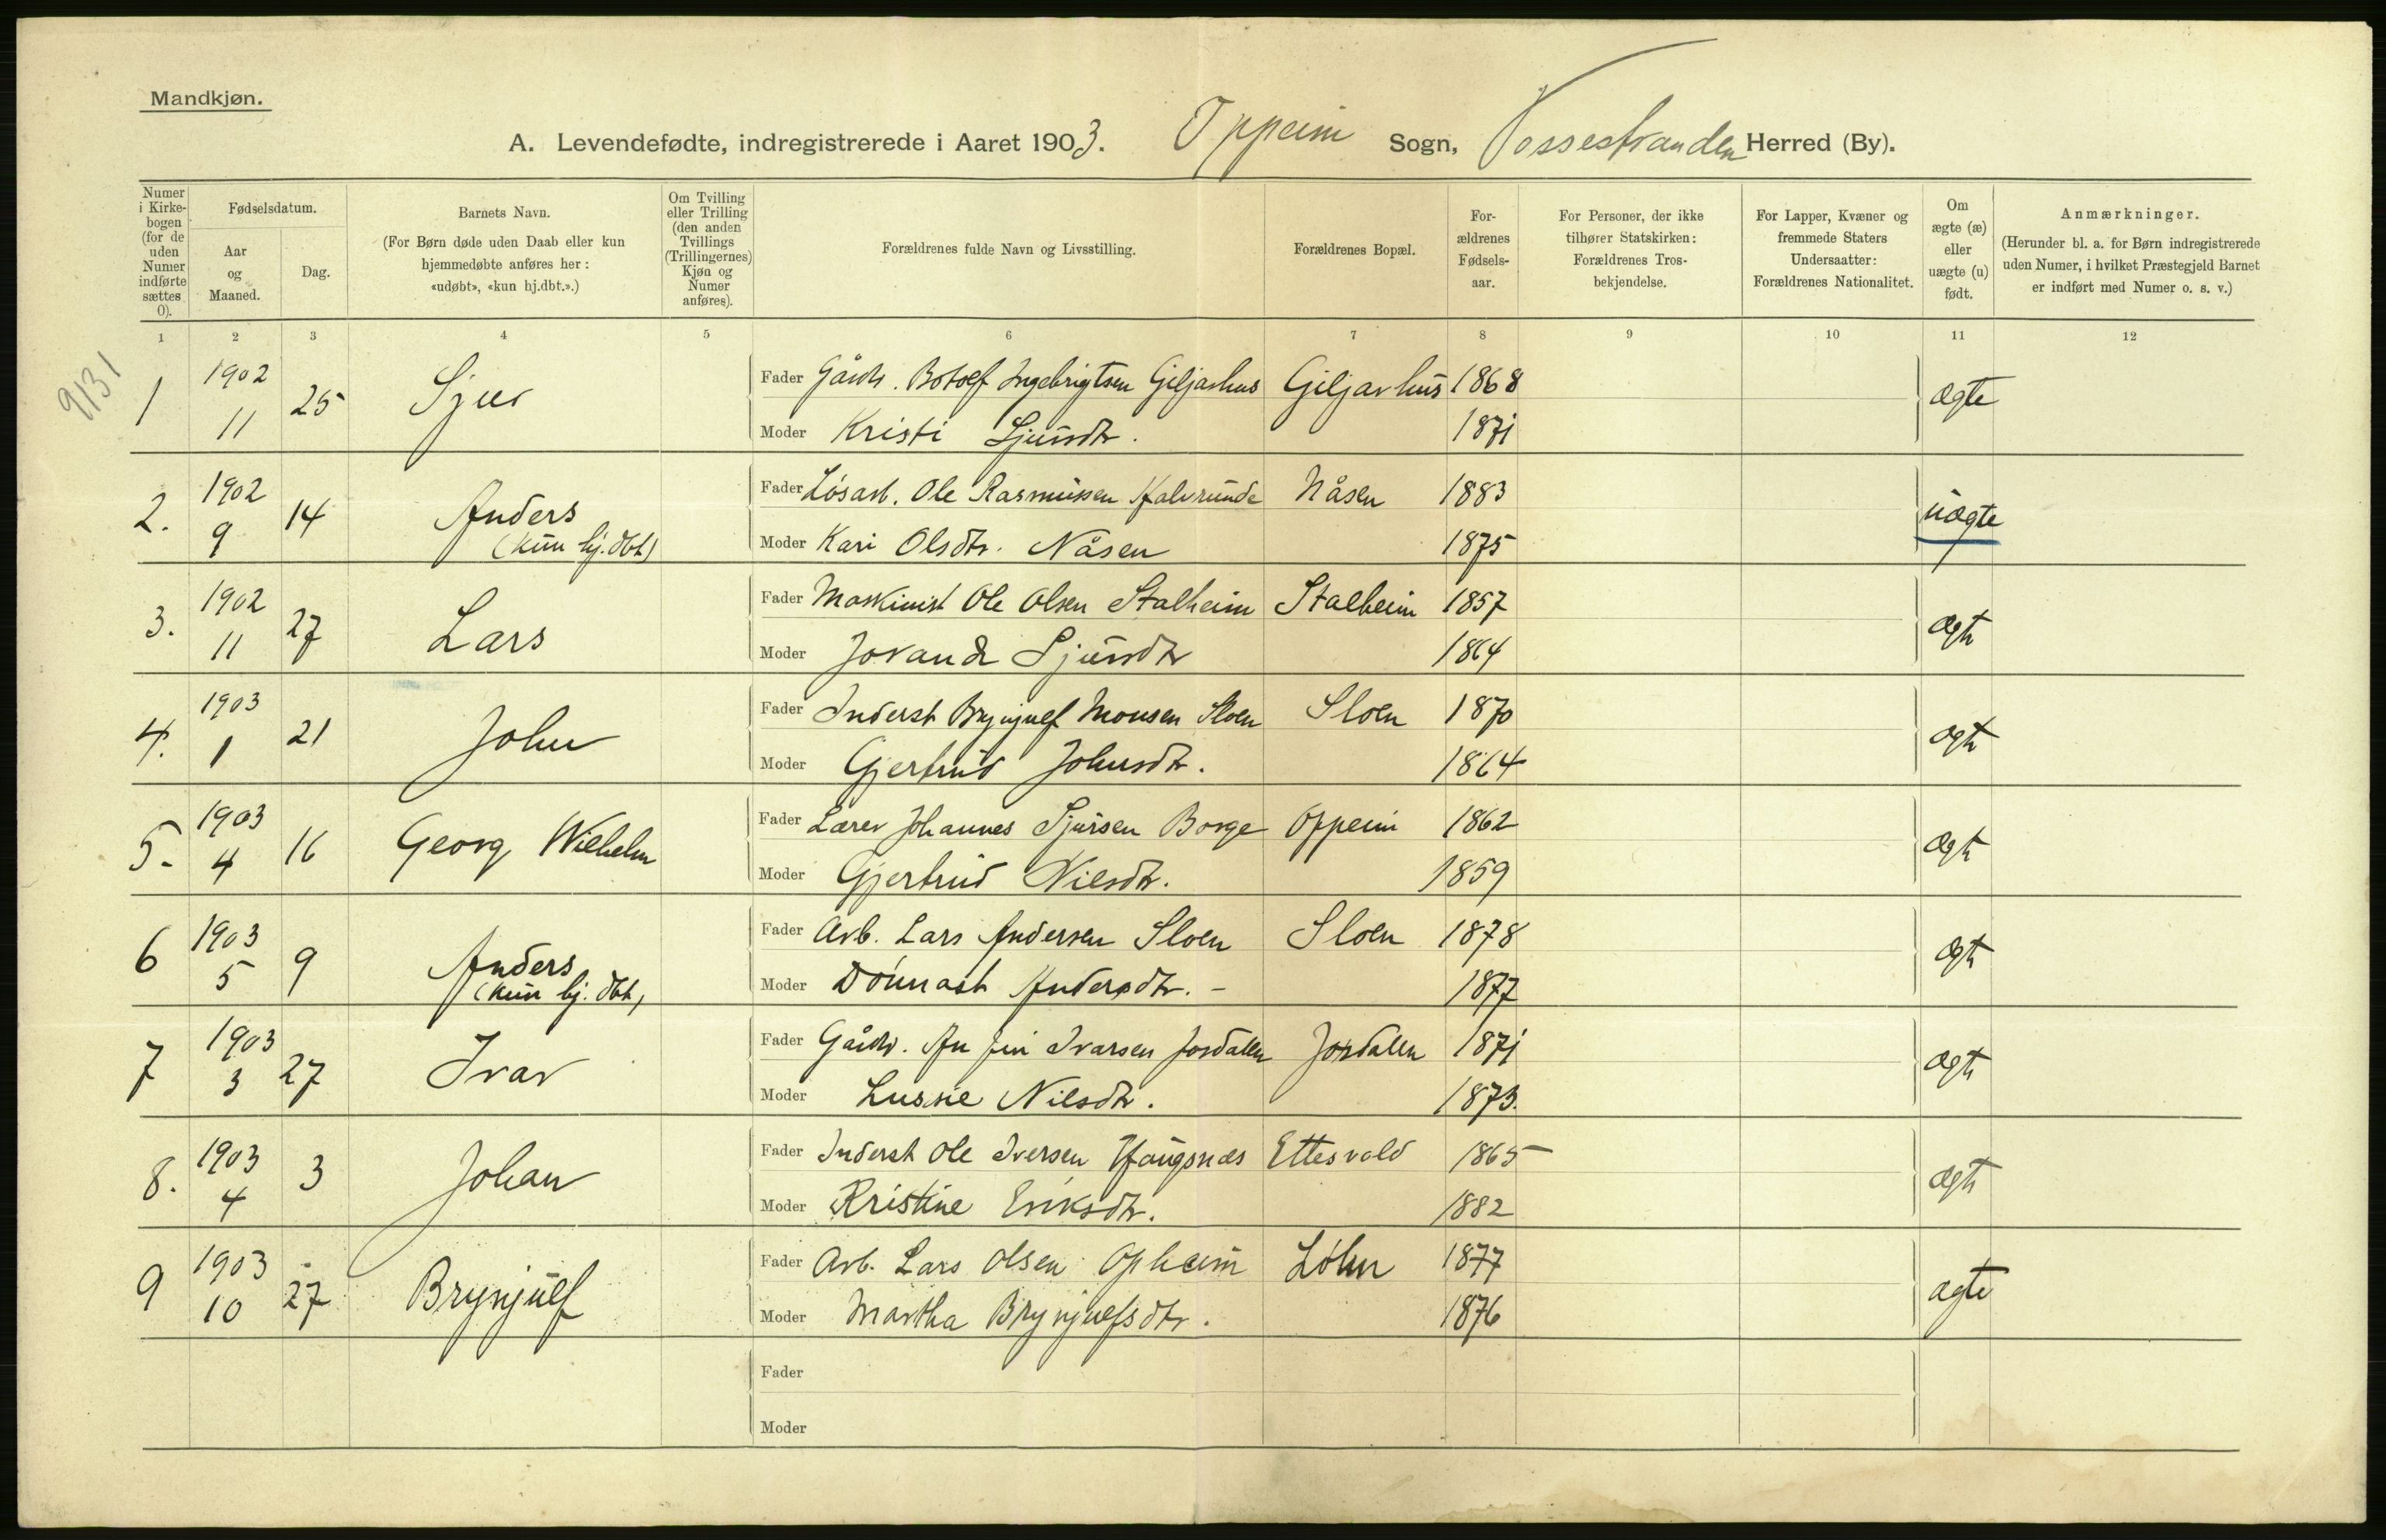 Mandkjøn.
A. Levendefødte, indregistrerede i Aaret 1903. Oppeim Sogn, Vossestranden Herred (By).
Numer i Kirke-bogen (for de uden Numer indførte sættes 0).
Fødselsdatum.
Aar og Maaned.
Dag.
Barnets Navn.
(For Børn døde uden Daab eller kun hjemmedøbte anføres her: «udøbt», «kun hj.dbt.».)
Om Tvilling eller Trilling (den anden Tvillings (Trillingernes) Kjøn og Numer anføres).
Forældrenes fulde Navn og Livsstilling.
Forældrenes Bopæl.
For-ældrenes Fødsels-aar.
For Personer, der ikke tilhører Statskirken: Forældrenes Tros-bekjendelse.
For Lapper, Kvæner og fremmede Staters Undersaatter: Forældrenes Nationalitet.
Om ægte (æ) eller uægte (u) født.
Anmærkninger.
(Herunder bl. a. for Børn indregistrerede uden Numer, i hvilket Præstegjeld Barnet er indført med Numer o. s. v.)
1 2 3 4 5 6 7 8 9 10 11 12
9131
1 1902 11 25 Sjur Fader Gårdbr. Botolf Ingebrigtsen Giljarhus Giljarhus 1868 ægte
Moder Kristi Sjursdtr. 1871
2. 1902 9 14 Anders (kun hj. dbt) Fader Løsarb. Ole Rasmussen Halvrunde Nåsen 1883 uægte
Moder Kari Olsdtr. Nåsen 1875
3. 1902 11 27 Lars Fader Maskinist Ole Olsen Stalheim Stalheim 1857 ægte
Moder Jorand Sjursdtr 1864
4. 1903 1 21 John Fader Inderst Brynjulf Monsen Sloen Sloen 1870 ægte
Moder Gjertrud Johnsdtr. 1864
5. 1903 4 16 Georg Wilhelm Fader Lærer Johannes Sjursen Borge Oppeim 1862 ægte
Moder Gjertrud Nilsdtr. 1859
6 1903 5 9 Anders (kun hj. dbt) Fader Arb. Lars Andersen Sloen Sloen 1878 ægte
Moder Andersdtr. - 1877
7 1903 3 27 Ivar Fader Gårdbr. Ivarsen Jordalen Jordalen 1871 ægte
Moder Lussie Nilsdtr. 1873.
8. 1903 4 3 Johan Fader Inderst Ole Iversen Haugsnes Ettesvold 1865 ægte
Moder Kristine Eriksdtr. 1882
9 1903 10 27 Brynjulf Fader Arb. Lars Olsen Opheim Løhn 1877 ægte
Moder Martha Brynjulfsdtr. 1876
Fader
Moder